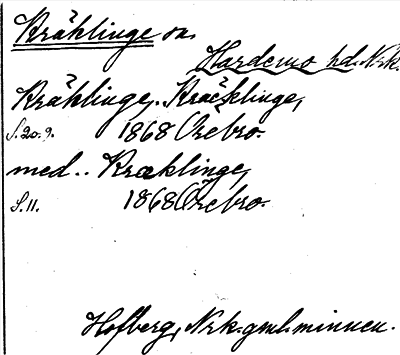 Kräklinge sn.
Hardemo hd. Nrk.
Kräklinge. Kräcklinge,
S. 20. 9. 1868 Örebro.
med.. Kræklinge,
S. 11. 1868 Örebro.
Hofberg, Nrk. gml. minnen.